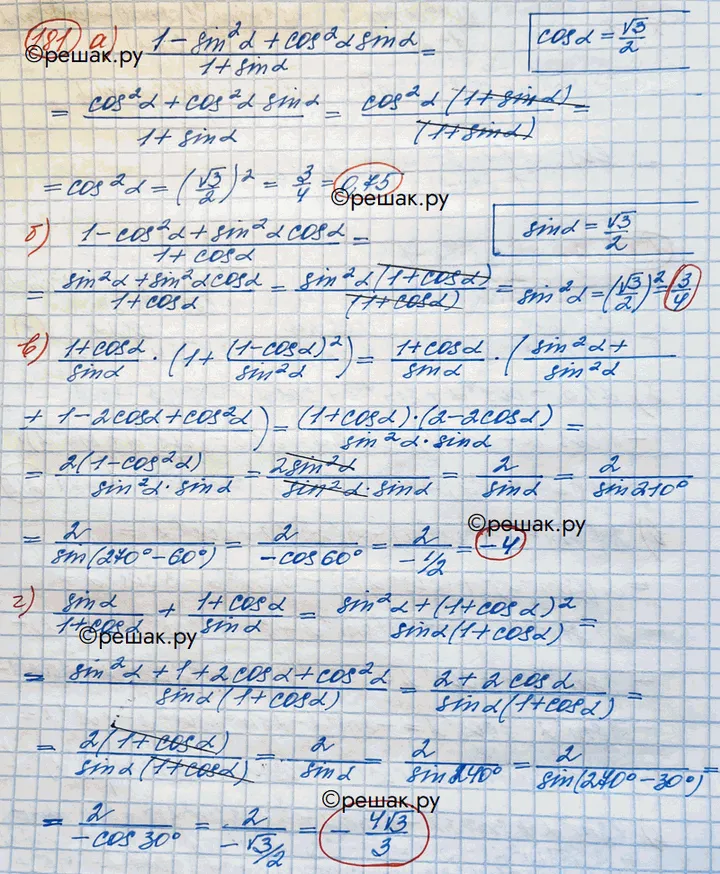 181 а) (1 − sin²α + cos²α sinα)/(1 + sinα) =
cosα = √3/2
©решак.ру
= (cos²α + cos²α sinα)/(1 + sinα) = (cos²α (1 + sinα))/((1 + sinα)) =
= cos²α = (√3/2)² = 3/4 = 0,75
©решак.ру
б) (1 − cos²α + sin²α cosα)/(1 + cosα) =
sinα = √3/2
= (sin²α + sin²α cosα)/(1 + cosα) = (sin²α (1 + cosα))/((1 + cosα)) = sin²α = (√3/2)² = 3/4
в) (1 + cosα)/sinα · (1 + (1 − cosα)²/sin²α) = (1 + cosα)/sinα · (sin²α +/sin²α
+ 1 − 2cosα + cos²α) = ((1 + cosα) · (2 − 2cosα))/(sin²α · sinα) =
= 2(1 − cos²α)/(sin²α · sinα) = 2sin²α/(sin²α · sinα) = 2/sinα = 2/sin210°
©решак.ру
= 2/sin(270° − 60°) = 2/−cos60° = 2/−1/2 = −4
г) sinα/(1 + cosα) + (1 + cosα)/sinα = (sin²α + (1 + cosα)²)/(sinα(1 + cosα)) =
©решак.ру
= (sin²α + 1 + 2cosα + cos²α)/(sinα(1 + cosα)) = (2 + 2cosα)/(sinα(1 + cosα)) =
= 2(1 + cosα)/(sinα(1 + cosα)) = 2/sinα = 2/sin240° = 2/sin(270° − 30°) =
©решак.ру
= 2/−cos30° = 2/−√3/2 = − 4√3/3